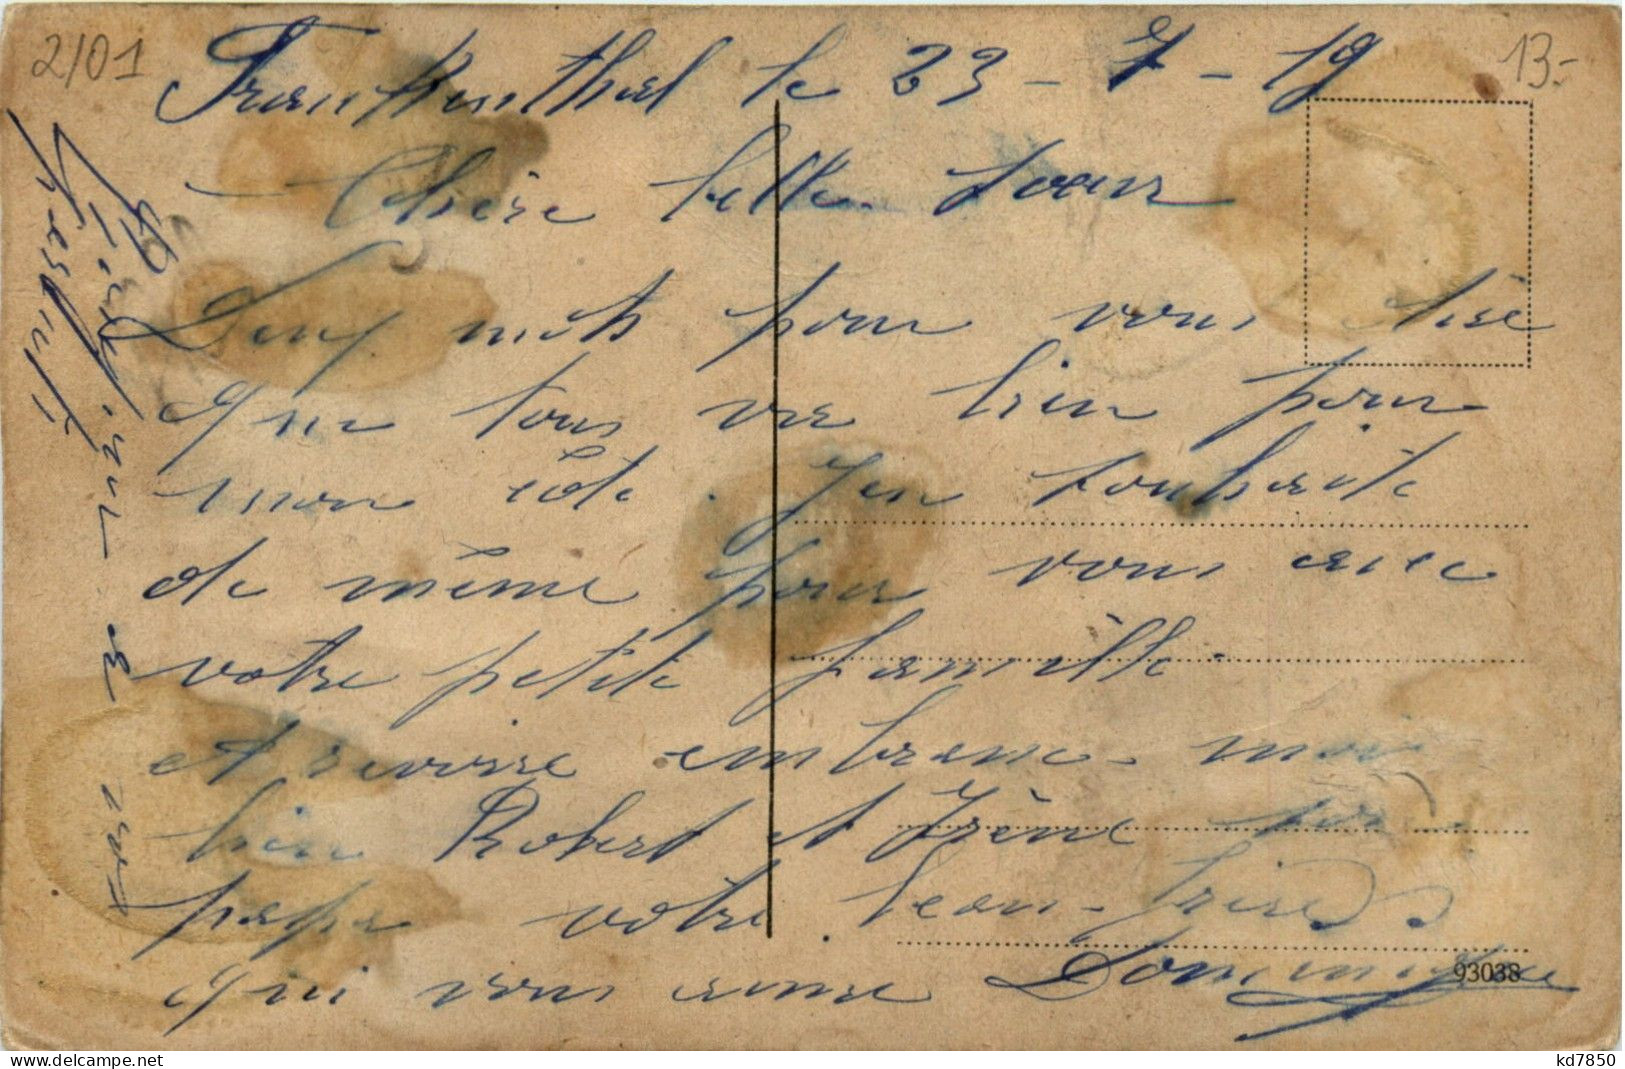 2/01
13.-
Frankenthal le 23-7-19
Chère belle soeur
Deux mots pour vous dire
que tous va bien pour
mon côté. J'en souhaite
de même pour vous avec
votre petite famille.
et au revoire embrasse-moi
bien Robert et Irène pour
papa votre beau-frère
qui vous aime Dominique
93038
kd7850